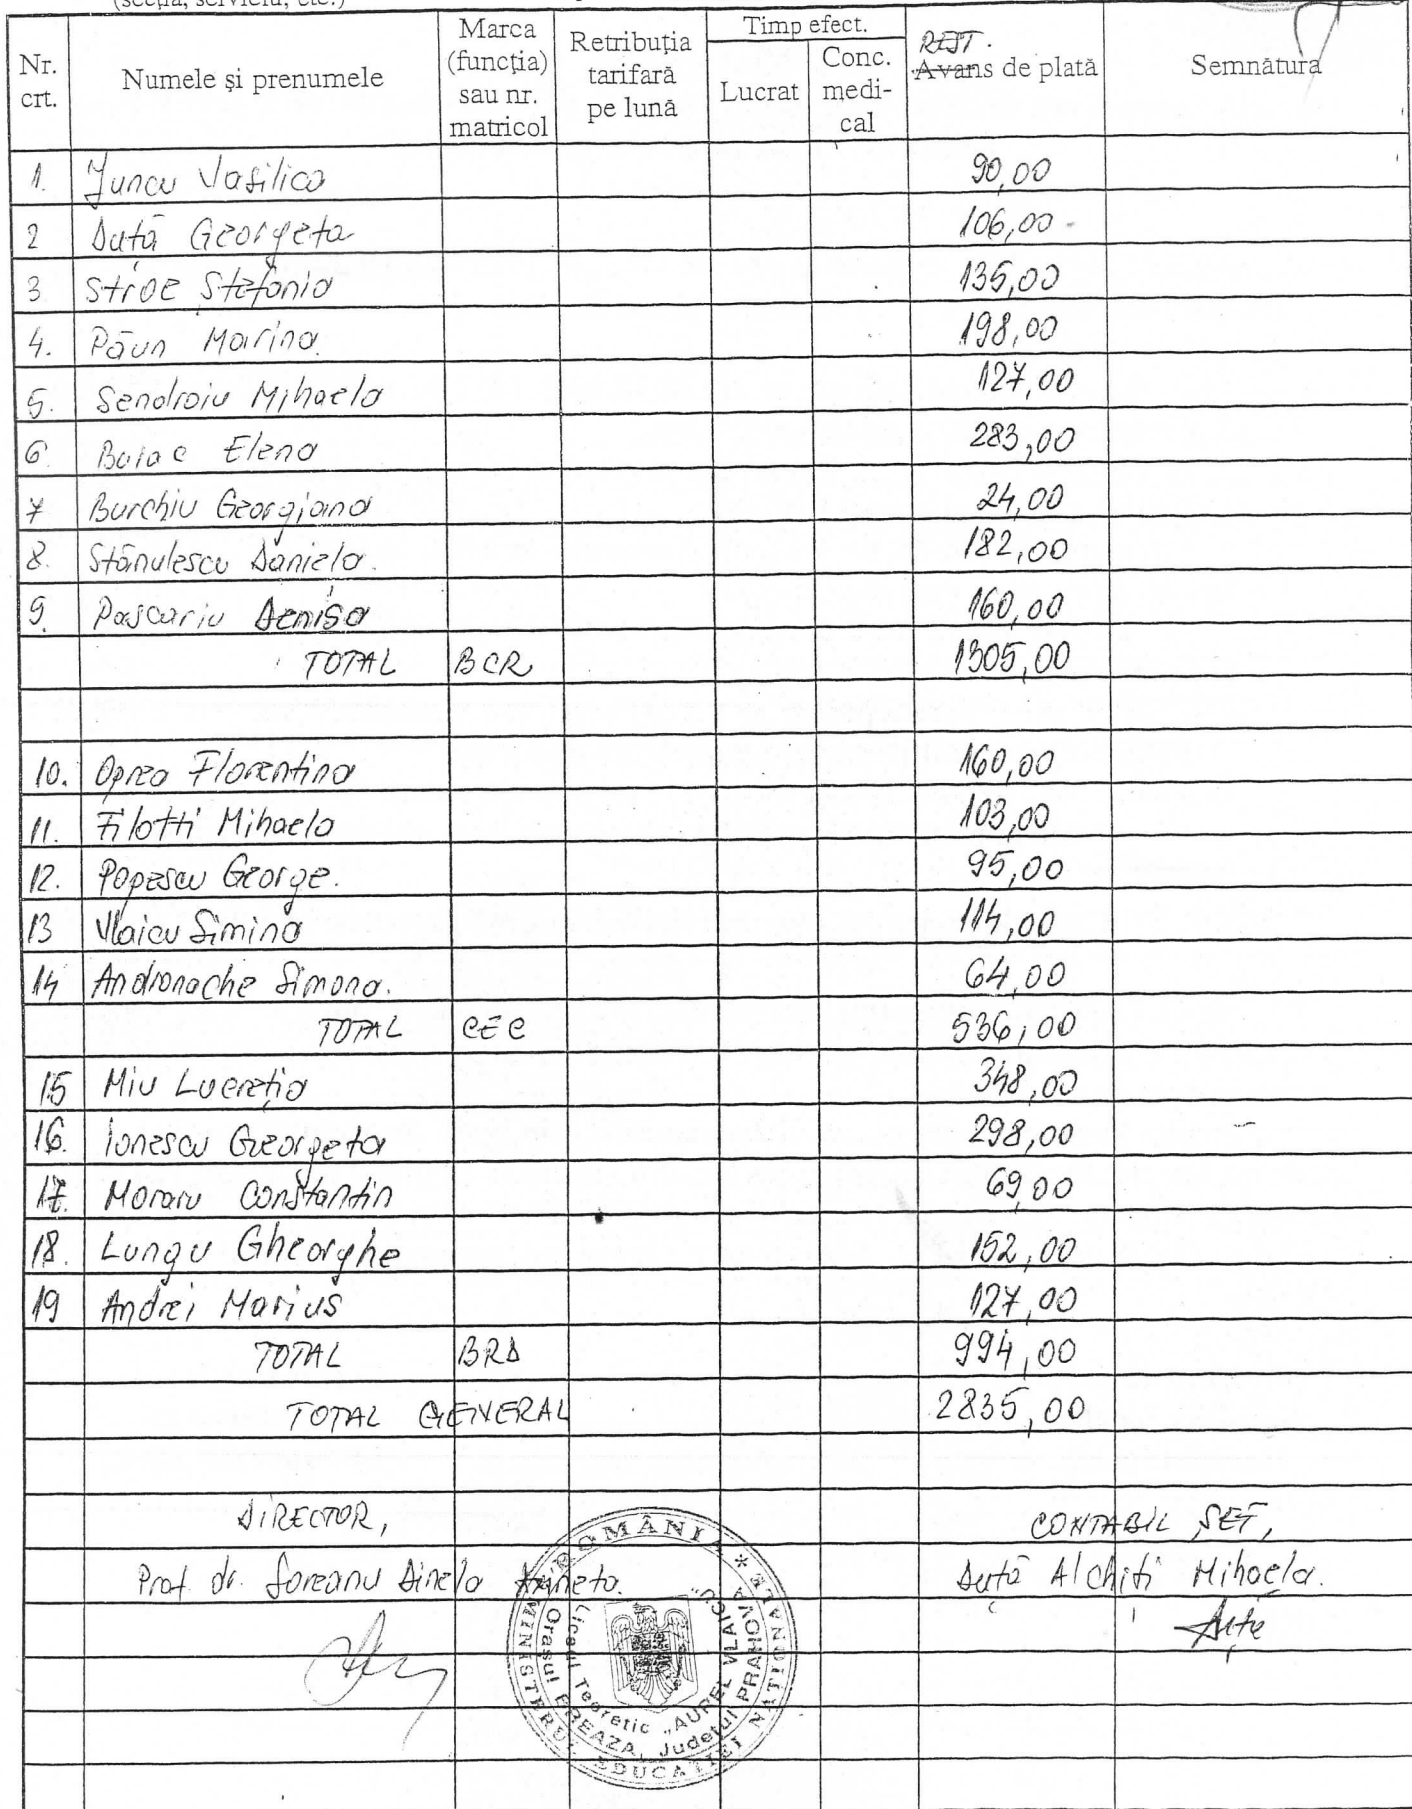 (secția, serviciu, etc.)
Nr. crt. Numele și prenumele Marca (funcția) sau nr. matricol Retribuția tarifară pe lună Timp efect. Lucrat Conc. medi-cal REST. Avans de plată Semnătura
1. Juncu Vasilica 90,00
2 Duță Georgeta 106,00
3 Stroe Ștefania 135,00
4. Păun Marina 198,00
5. Sendroiu Mihaela 127,00
6. Elena 283,00
7 Burchiu Georgiana 24,00
8. Stănulescu Daniela. 182,00
9. Pascariu Denisa 160,00
TOTAL BCR 1305,00
10. Oprea Florentina 160,00
11. Filotti Mihaela 103,00
12. Popescu George. 95,00
13 Vlaicu Simina 114,00
14 Andronache Simona. 64,00
TOTAL CEC 536,00
15 Miu Lucreția 348,00
16. Ionescu Georgeta 298,00
17. Moraru Constantin 69,00
18. Lungu Gheorghe 152,00
19 Andrei Marius 127,00
TOTAL BRD 994,00
TOTAL GENERAL 2835,00
DIRECTOR, CONTABIL ȘEF,
Prof. dr. Soreanu Dinela Duță Alchiți Mihaela.
ROMÂNIA * MINISTERUL EDUCAȚIEI NAȚIONALE *
Orașul BREAZA, Județul PRAHOVA
Liceul Teoretic „AUREL VLAICU"